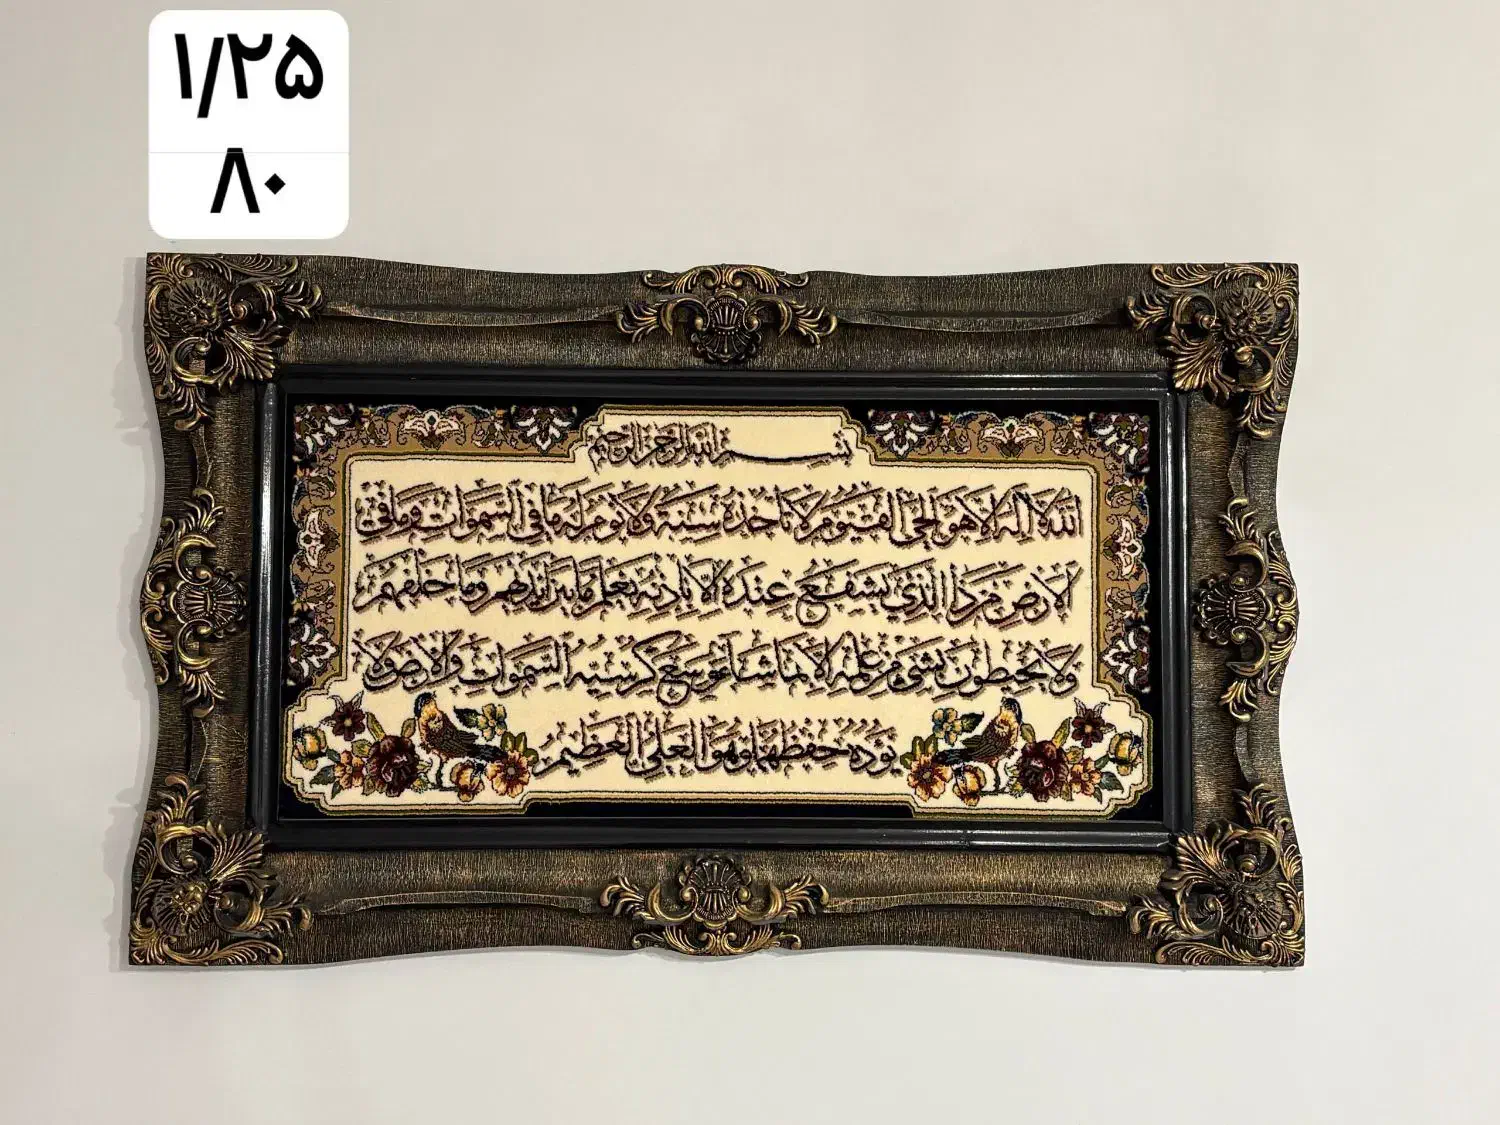 ۱/۲۵
۸۰
بسم الله الرحمن الرحیم
الله لا اله الا هو الحی القیوم لا تاخذه سنة ولا نوم له ما فی السموات وما فی
الارض من ذا الذی یشفع عنده الا باذنه یعلم ما بین ایدیهم وما خلفهم
ولا یحیطون بشیء من علمه الا بما شاء وسع کرسیه السموات والارض ولا
یؤده حفظهما وهو العلی العظیم